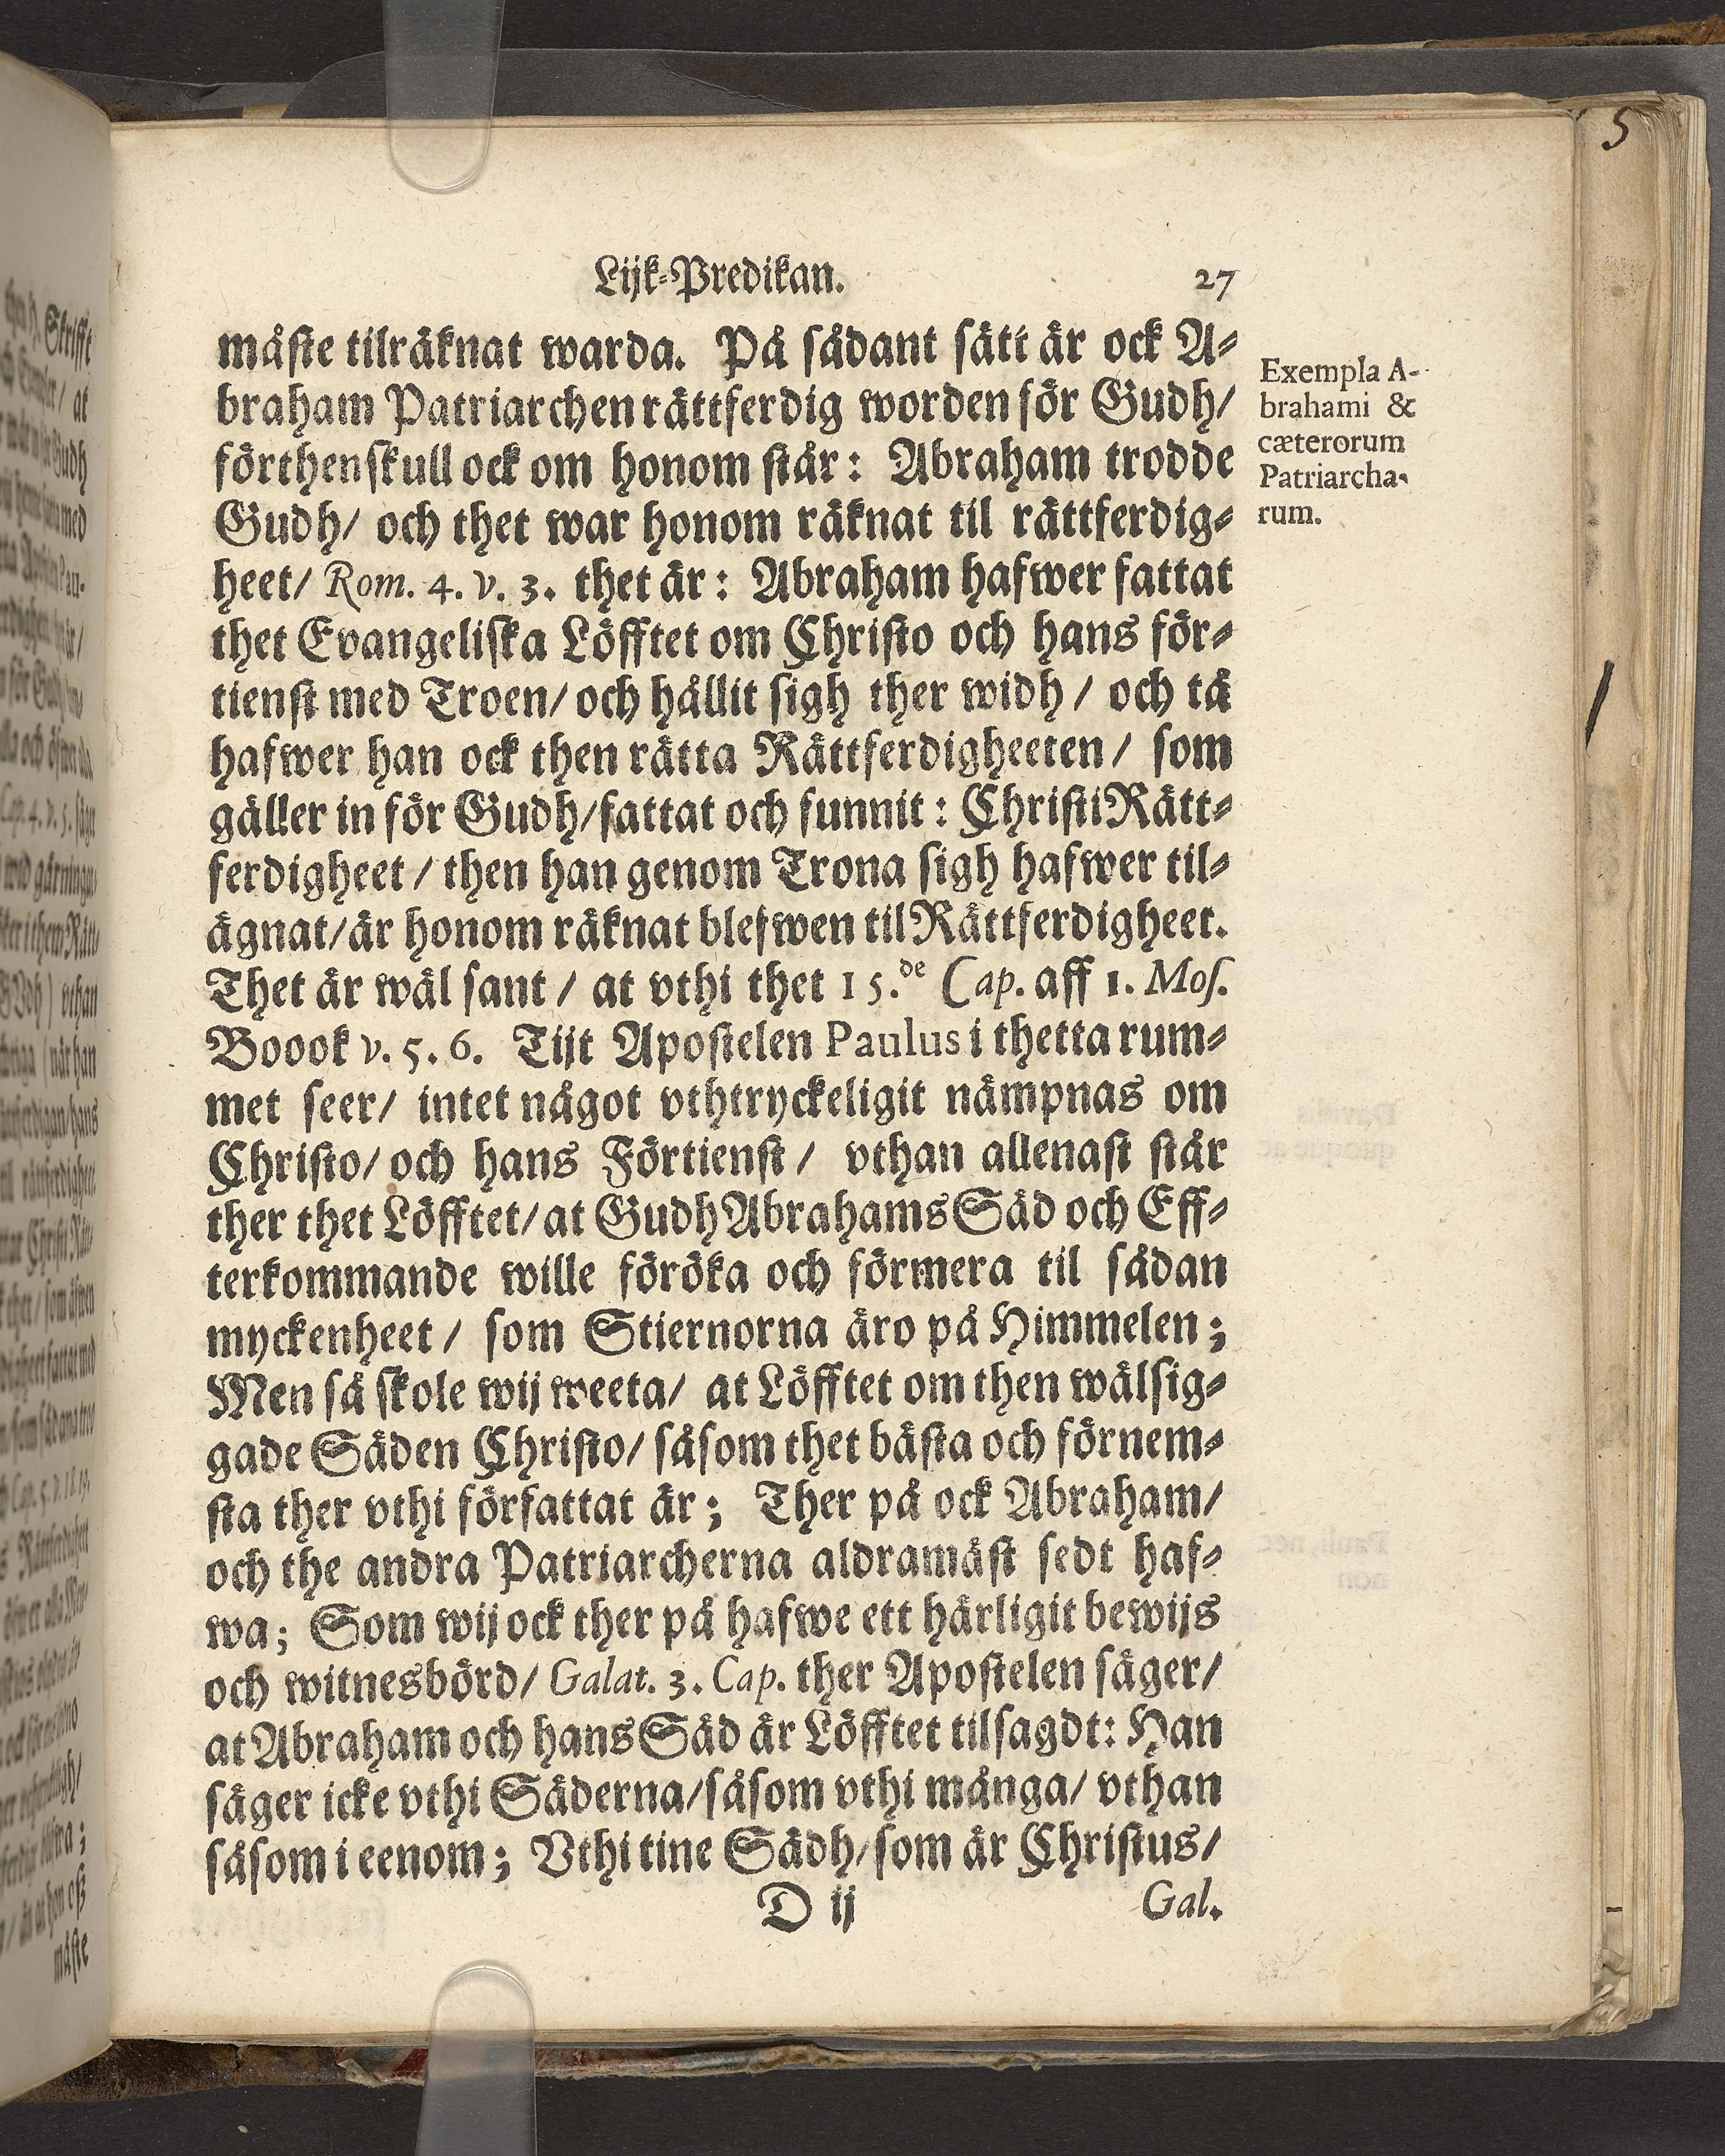 Lijk-Predikan. 27
måste tilräknat warda. På sådant sätt är ock A-
braham Patriarchen rättferdig worden för Gudh/
förthenskull ock om honom står: Abraham trodde
Gudh/ och thet war honom räknat til rättferdig-
heet/ Rom. 4. v. 3. thet är: Abraham hafwer fattat
thet Evangeliska Löfftet om Christo och hans för-
tienst med Troen/ och hållit sigh ther widh / och tå
hafwer han ock then rätta Rättferdigheeten / som
gäller in för Gudh/ fattat och funnit: Christi Rätt-
ferdigheet / then han genom Trona sigh hafwer til-
ägnat/ är honom räknat blefwen til Rättferdigheet.
Thet är wäl sant / at vthi thet 15.de Cap. aff 1. Mos.
Boook v. 5. 6. Tijt Apostelen Paulus i thetta rum-
met seer/ intet något vthtryckeligit nämpnas om
Christo/ och hans Förtienst / vthan allenast står
ther thet Löfftet/ at Gudh Abrahams Säd och Eff-
terkommande wille föröka och förmera til sådan
myckenheet / som Stiernorna äro på Himmelen;
Men så skole wij weeta/ at Löfftet om then wälsig-
gade Säden Christo/ såsom thet bästa och förnem-
sta ther vthi författat är; Ther på ock Abraham/
och the andra Patriarcherna aldramäst sedt haf-
wa; Som wij ock ther på hafwe ett härligit bewijs
och witnesbörd/ Galat. 3. Cap. ther Apostelen säger/
at Abraham och hans Säd är Löfftet tilsagdt: Han
säger icke vthi Säderna/ såsom vthi många/ vthan
såsom i eenom; Vthi tine Sädh/ som är Christus/
D ij Gal.
Exempla A-
brahami &
cæterorum
Patriarcha-
rum.
5